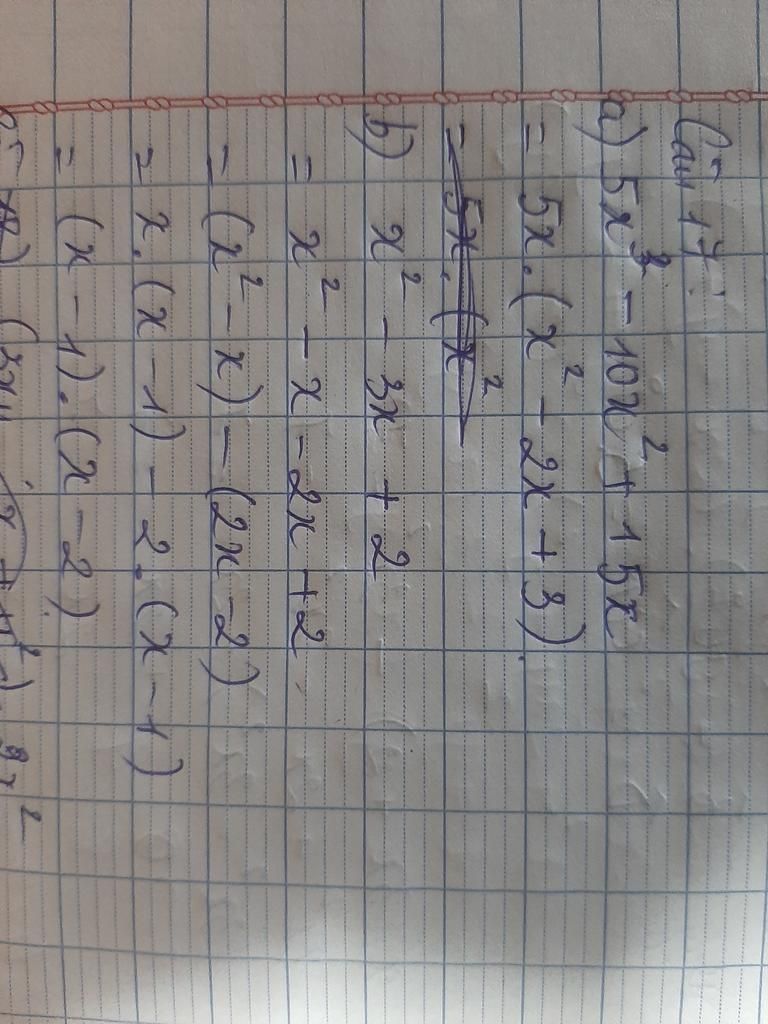 Câu 17:
a) 5x³ - 10x² + 15x
= 5x.(x² - 2x + 3)
= 5x.(x²
b) x² - 3x + 2
= x² - x - 2x + 2
= (x² - x) - (2x - 2)
= x.(x - 1) - 2.(x - 1)
= (x - 1).(x - 2)